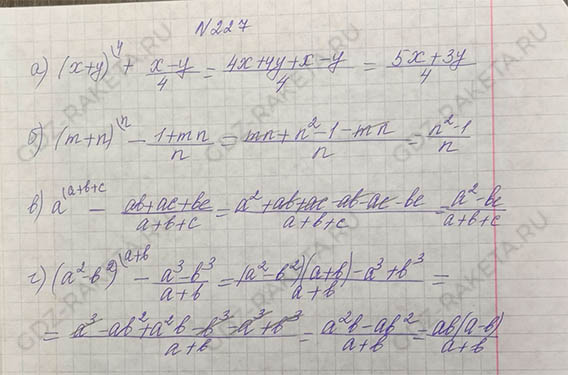 N227
а) (x+y)^(4 + (x-y)/4 = (4x+4y+x-y)/4 = (5x+3y)/4
б) (m+n)^(n - (1+mn)/n = (mn+n²-1-mn)/n = (n²-1)/n
в) a^(a+b+c - (ab+ac+bc)/(a+b+c) = (a²+ab+ac-ab-ac-bc)/(a+b+c) = (a²-bc)/(a+b+c)
г) (a²-b²)^(a+b - (a³-b³)/(a+b) = ((a²-b²)(a+b)-a³+b³)/(a+b) =
= (a³-ab²+a²b-b³-a³+b³)/(a+b) = (a²b-ab²)/(a+b) = (ab(a-b))/(a+b)
GDZ-RAKETA.RU